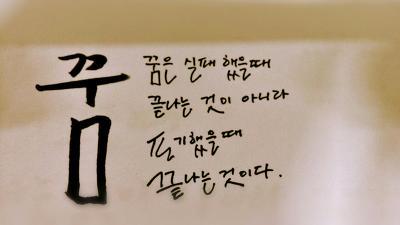 꿈
꿈은 실패 했을때
끝나는 것이 아니라
포기했을때
끝나는 것이다.